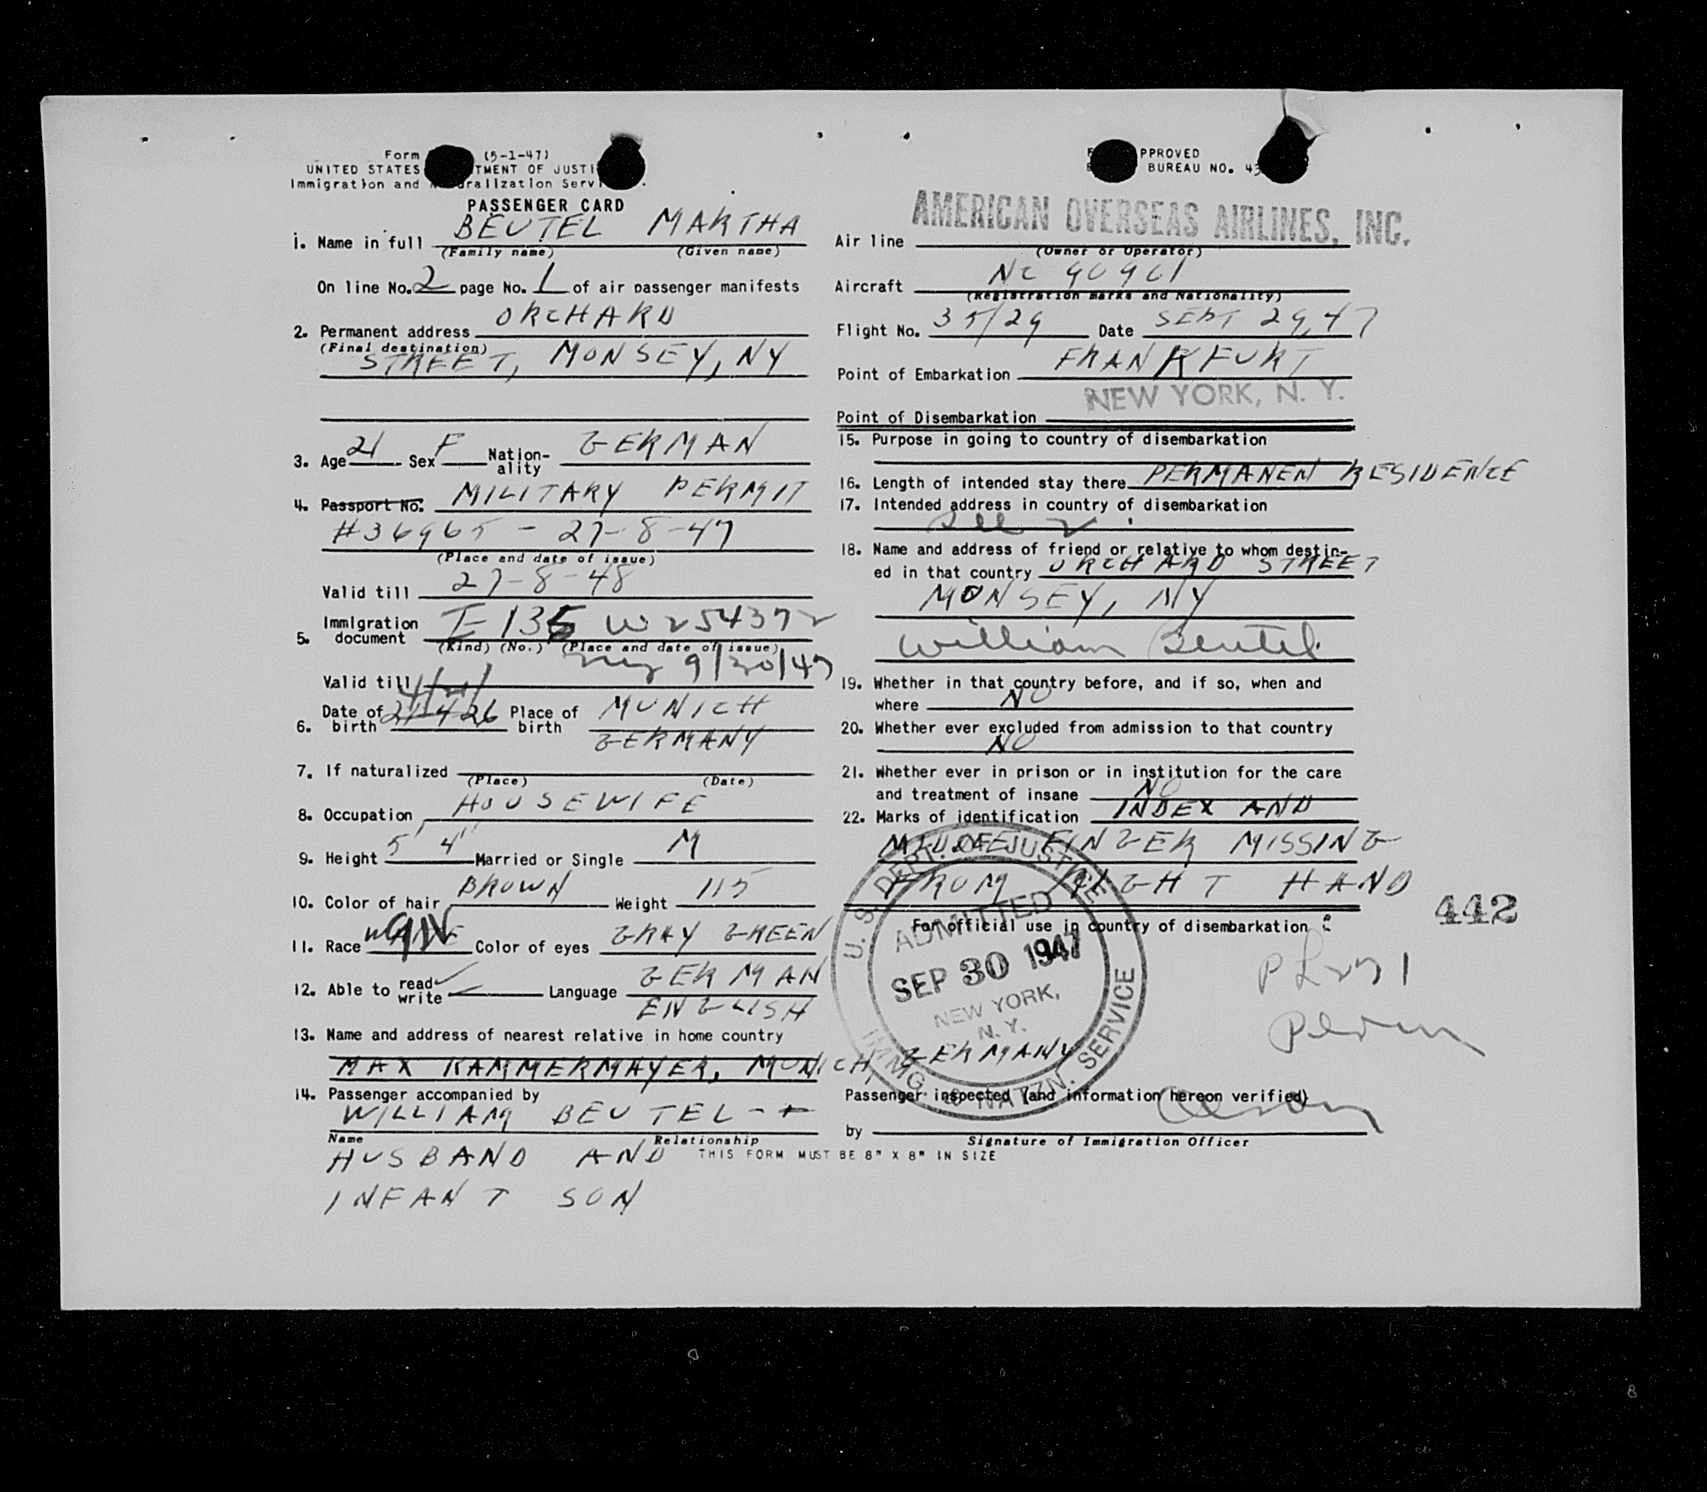 Form (5-1-47)
UNITED STATES TMENT OF JUSTI
Immigration and ralization Servi
PASSENGER CARD
1. Name in full BEUTEL MARTHA
(Family name) (Given name)
On line No. 2 page No. 1 of air passenger manifests
2. Permanent address ORCHARD
(Final destination)
STREET, MONSEY, NY
3. Age 21 Sex F Nation-ality GERMAN
4. Passport No. MILITARY PERMIT
#36965 - 27-8-47
(Place and date of issue)
Valid till 27-8-48
5. Immigration document I-135 W254372
(Kind) (No.) (Place and date of issue)
9/30/47
Valid till
4/21/
6. Date of birth 21-4-26 Place of birth MUNICH
GERMANY
7. If naturalized
(Place) (Date)
8. Occupation HOUSEWIFE
9. Height 5' 4" Married or Single M
10. Color of hair BROWN Weight 115
11. Race Color of eyes GRAY GREEN
12. Able to read write Language GERMAN
ENGLISH
13. Name and address of nearest relative in home country
MAX KAMMERMAYER, MUNICH, GERMANY
14. Passenger accompanied by
WILLIAM BEUTEL - +
Name Relationship
HUSBAND AND
INFANT SON
THIS FORM MUST BE 8" X 8" IN SIZE
PPROVED
BUREAU NO. 43
AMERICAN OVERSEAS AIRLINES, INC.
Air line
(Owner or Operator)
Aircraft NC 90901
(Registration marks and Nationality)
Flight No. 35/29 Date SEPT 29, 47
Point of Embarkation FRANKFURT
Point of Disembarkation NEW YORK, N. Y.
15. Purpose in going to country of disembarkation
16. Length of intended stay there PERMANEN RESIDENCE
17. Intended address in country of disembarkation
See 2.
18. Name and address of friend or relative to whom destin-
ed in that country ORCHARD STREET
MONSEY, NY
William Beutel
19. Whether in that country before, and if so, when and
where NO
20. Whether ever excluded from admission to that country
NO
21. Whether ever in prison or in institution for the care
and treatment of insane NO
22. Marks of identification INDEX AND
MIDDLE FINGER MISSING
FROM RIGHT HAND
442
For official use in country of disembarkation
U. S. DEPT. OF JUSTICE
ADMITTED
SEP 30 1947
NEW YORK,
N. Y.
IMMG. & NATZN. SERVICE
Passenger inspected (and information hereon verified)
by
Signature of Immigration Officer